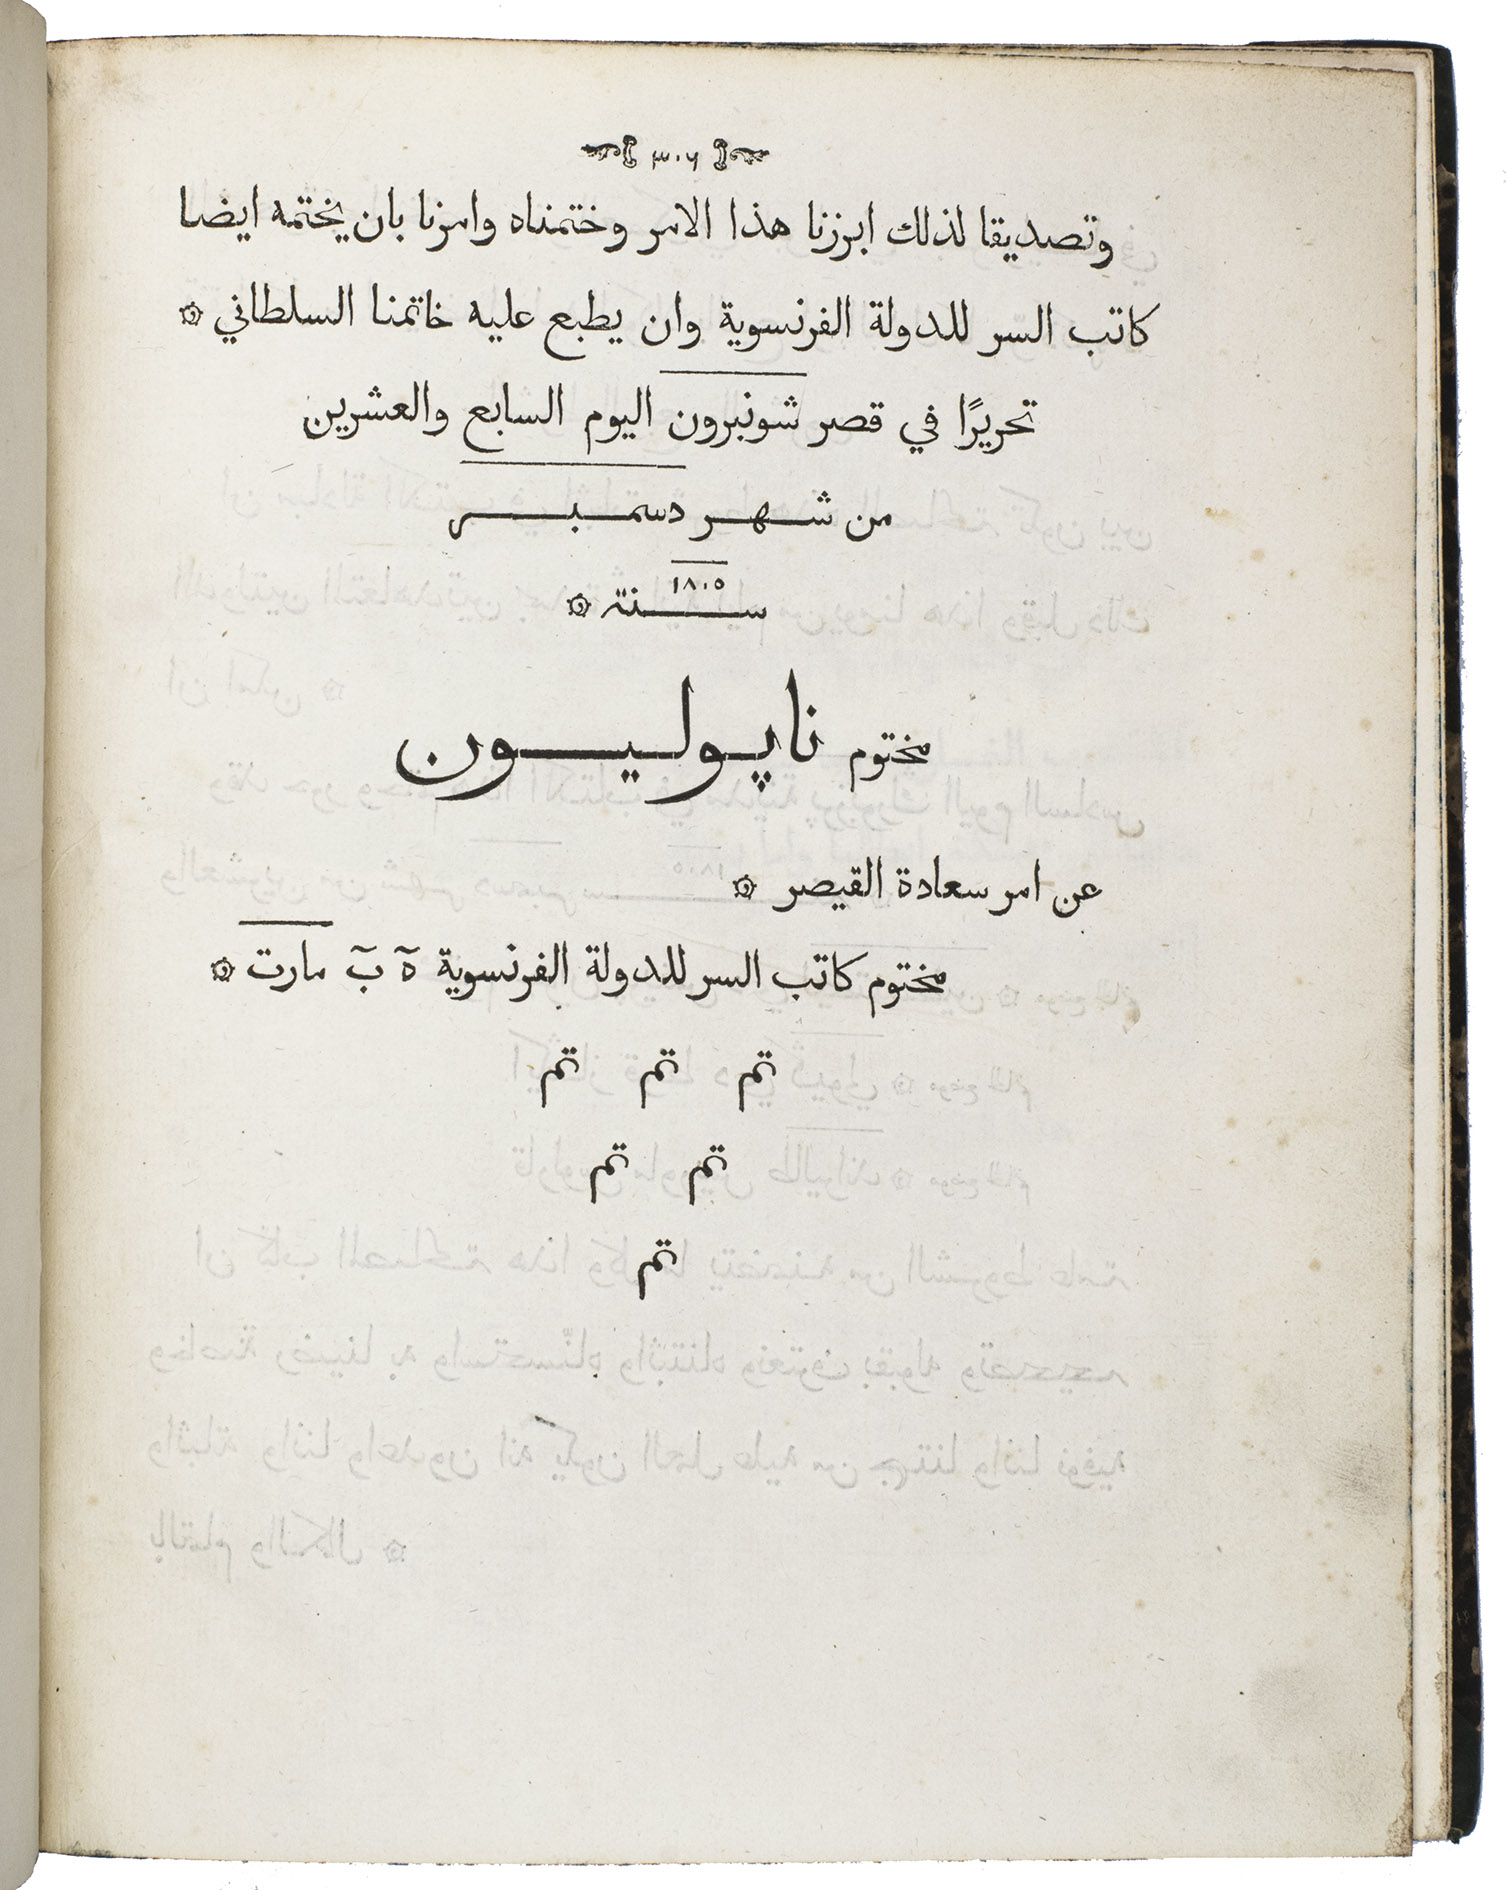 ٣٠٧
وتصديقا لذلك ابرزنا هذا الامر وختمناه وامرنا بان يختمه ايضا
كاتب السر للدولة الفرنسوية وان يطبع عليه خاتمنا السلطاني ۞
تحريرًا في قصر شونبرون اليوم السابع والعشرين
من شهر دسمبر
١٨٠٥
سنة ۞
مختوم ناپوليون
عن امر سعادة القيصر ۞
مختوم كاتب السر للدولة الفرنسوية ه ب مارت ۞
تم تم تم
تم تم
تم